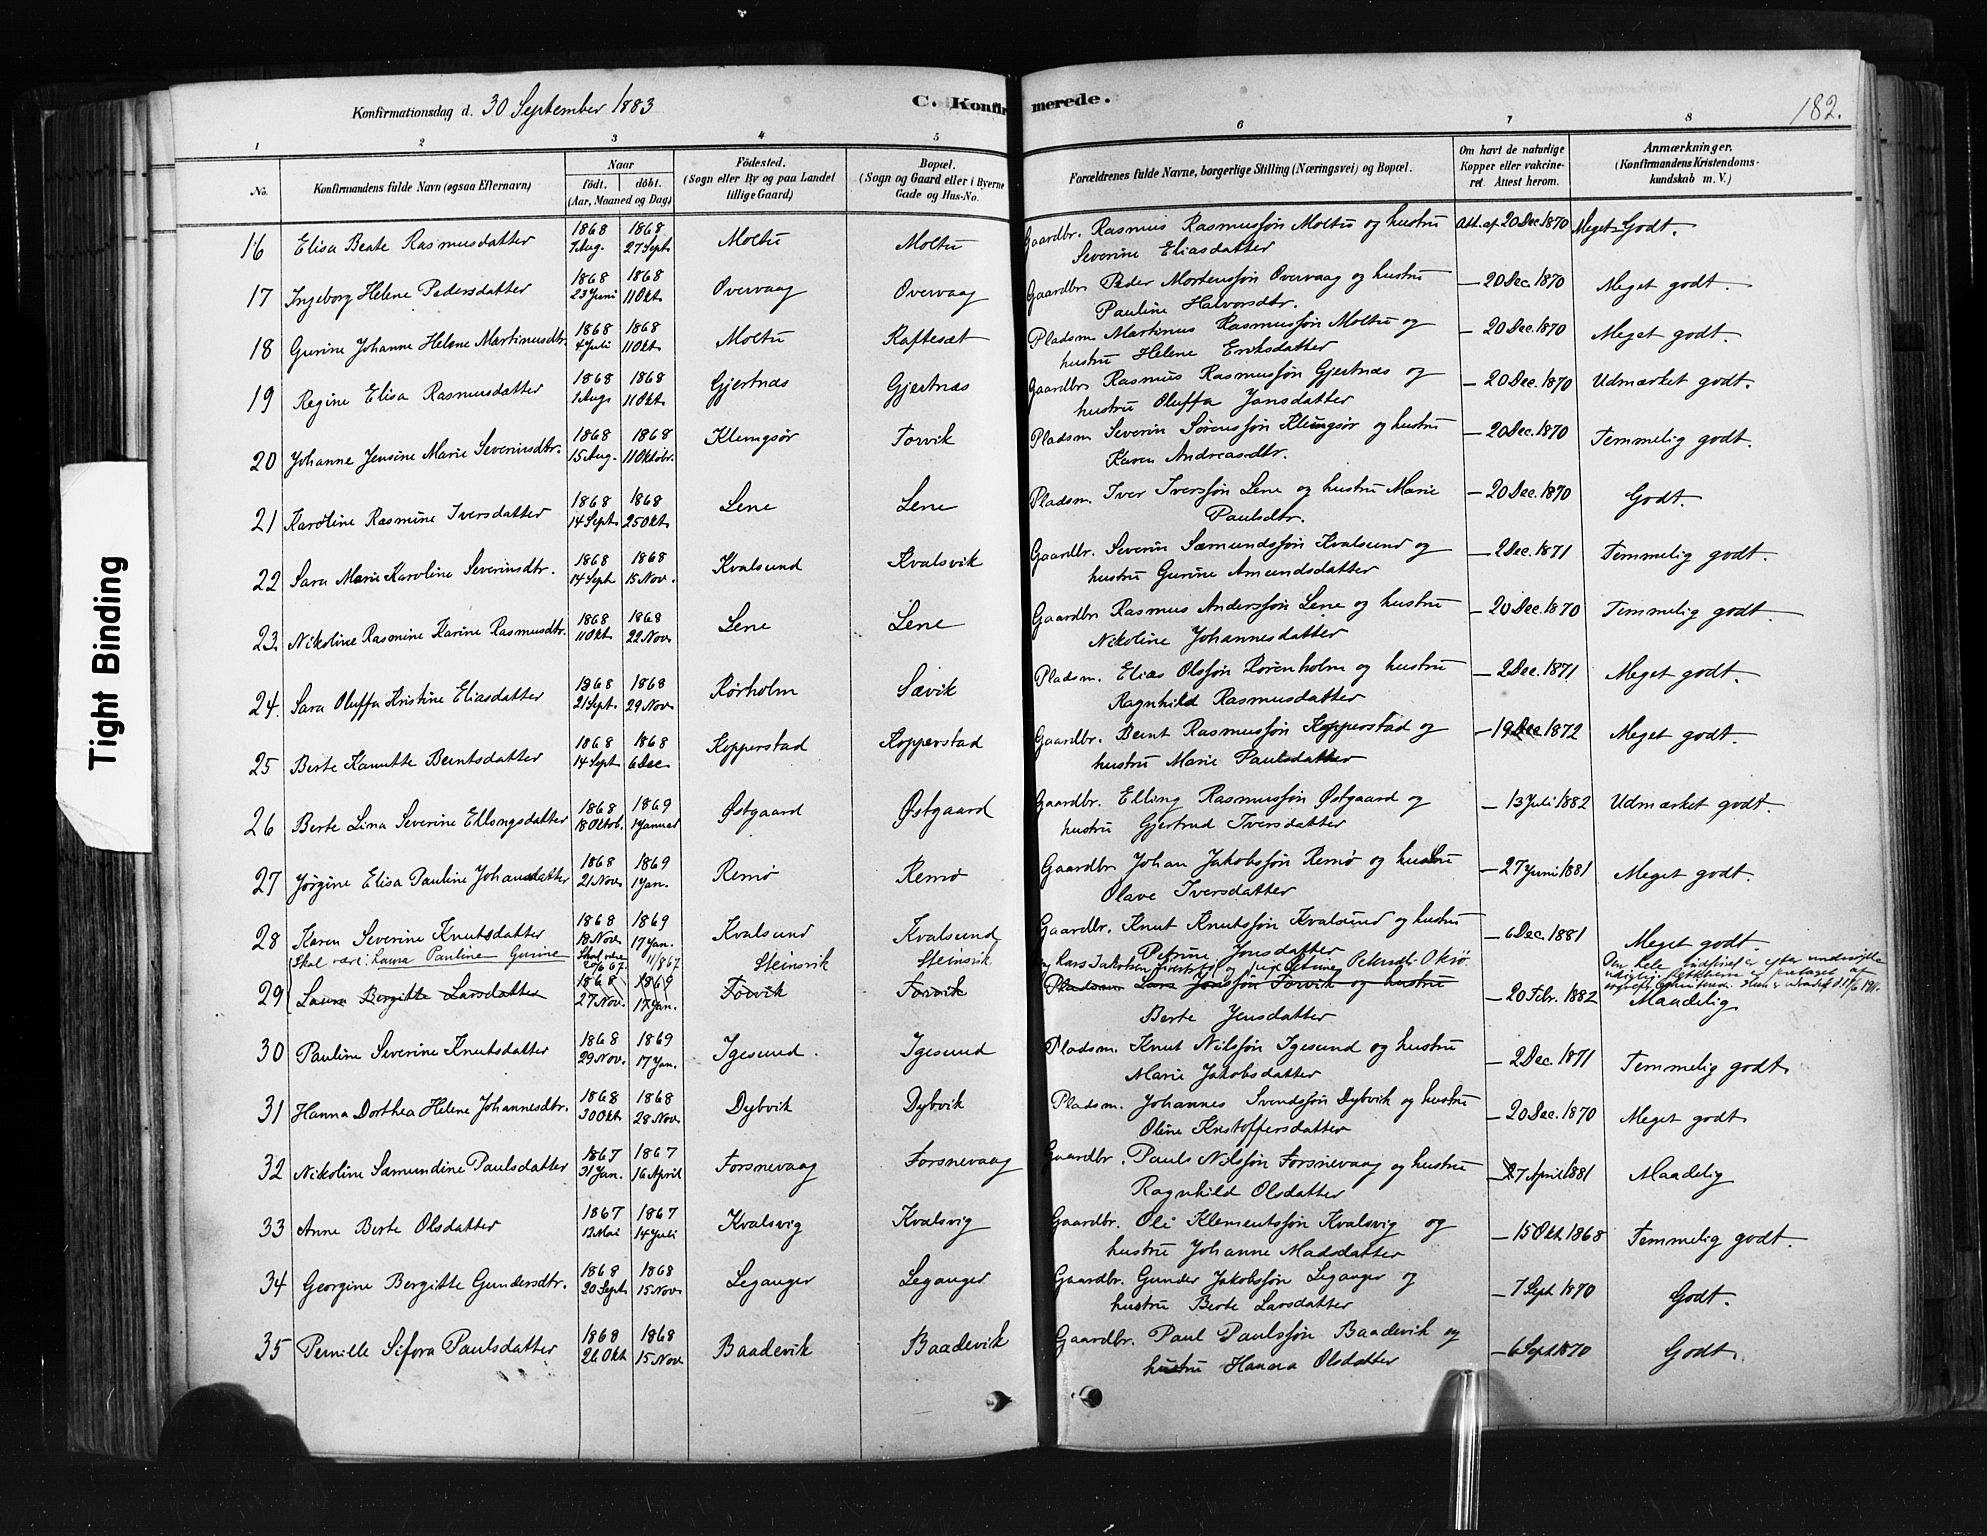 Konfirmationsdag d. 30 September 1883
C. Konfirmerede.
182.
1 2 3 4 5 6 7 8
No. Konfirmandens fulde Navn (ogsaa Efternavn) Naar født. døbt. (Aar, Maaned og Dag) Fødested. (Sogn eller By og paa Landet tillige Gaard) Bopæl. (Sogn og Gaard eller i Byerne Gade og Hus-No. Forældrenes fulde Navne, borgerlige Stilling (Næringsvei) og Bopæl. Om havt de naturlige Kopper eller vakcineret. Attest herom. Anmærkninger. (Konfirmandens Kristendomskundskab m. V.)
16 Elisa Beate Rasmusdatter 1868 1 Aug. 1868 27 Sept. Moltu Moltu Gaardbr. Rasmus Rasmussøn Moltu og hustru Att. af 20 Dec 1870 Meget Godt.
Severine Eliasdatter
17 Ingeborg Helene Pedersdatter 1868 23 Juni 1868 11 Okt Overvaag Overvaag Gaardbr Peder Mortenssøn Overvaag og hustru — 20 Dec. 1870 Meget godt.
Pauline Halvorsdtr.
18 Gurine Johanne Helene Martinusdtr. 1868 4 Juli 1868 11 Okt Moltu Raftesæt Pladsm Martinus Rasmussøn Moltu og — 20 Dec. 1870 Meget godt.
hustru Helene Eriksdatter
19 Regine Elisa Rasmusdatter 1868 1 Aug. 1868 11 Okt Gjertnæs Gjertnæs Gaardbr Rasmus Rasmussøn Gjertnæs og — 20 Dec. 1870 Udmærket godt.
hustru Oluffa Jansdatter
20 Johanne Jensine Marie Severinsdtr. 1868 15 Aug. 1868 11 Oktobr. Klungsør Torvik Pladsm Severin Sørenssøn Klungsør og hustru — 20 Dec. 1870 Temmelig godt.
Karen Andreasdtr.
21 Karoline Rasmine Iversdatter 1868 14 Sept. 1868 25 Okt Lene Lene Pladsm. Iver Iverssøn Lene og hustru Marie — 20 Dec. 1870 Godt.
Paulsdtr.
22 Sara Marie Karoline Severinsdtr. 1868 14 Sept 1868 15 Nov. Kvalsund Kvalsvik Gaardbr. Severin Sæmundssøn Kvalsund og — 2 Dec. 1871 Temmelig godt.
hustru Gurine Amundsdatter
23 Nikoline Rasmine Karine Rasmusdtr. 1868 11 Okt. 1868 22 Nov Lene Lene Gaardbr Rasmus Anderssøn Lene og hustru — 20 Dec. 1870 Temmelig godt.
Nikoline Johannesdatter
24. Sara Oluffa Kristine Eliasdatter 1868 21 Sept. 1868 29 Nov Rørholm Sævik Pladsm. Elias Olssøn Rørenholm og hustru — 2 Dec. 1871 Meget godt.
Ragnhild Rasmusdatter
25 Berte Kanutte Berntsdatter 1868 14 Sept 1868 6 Dec Kopperstad Kopperstad Gaardbr. Bernt Rasmussøn Kopperstad og — 19 Dec 1872 Meget godt.
hustru Marie Paulsdatter
26 Berte Lina Severine Ellingsdatter 1868 18 Oktob. 1869 1 Januar Østgaard Østgaard Gaardbr. Elling Rasmussøn Østgaard og — 13 Juli 1882 Udmærket godt.
hustru Gjertrud Iversdatter
27 Jørgine Elisa Pauline Johansdatter 1868 21 Nov. 1869 1 Jan. Remø Remø Gaardbr Johan Jakobssøn Remø og hustru — 27 Juni 1881 Meget godt.
Olave Iversdatter
28 Karen Severine Knutsdatter 1868 18 Nov. 1869 17 Jan. Kvalsund Kvalsund Gaardbr. Knut Knutssøn Kvalsund og hustru — 6 Dec. 1881 Meget godt.
Petrine Jonsdatter
Skal være: Laura Pauline Gurine Skal være 20/6 67 11/8 67 Steinsvik Steinsvik
29 Laura Bergitte Larsdatter 1868 27 Nov. 1869 17 Jan. Torvik Torvik Pladsm Lars Jonssøn Torvik og hustru — 20 Febr. 1882 Maadelig
Berte Jensdatter
30 Pauline Severine Knutsdatter 1868 29 Nov. 1869 17 Jan. Igesund. Igesund Pladsm. Knut Nilssøn Igesund og hustru — 2 Dec. 1871 Temmelig godt.
Marie Jakobsdatter
31 Hanna Dorthea Helene Johannesdtr. 1868 30 Okt. 1868 28 Nov Dybvik Dybvik Pladsm. Johannes Svendssøn Dybvik og hustru — 20 Dec. 1870 Meget godt
Oline Kristoffersdatter
32 Nikoline Sæmundine Paulsdatter 1867 31 Jan. 1867 16 April Forsnevaag Forsnevaag Gaardbr. Pauls Nilssøn Forsnevaag og hustru — 27 April 1881 Maadelig
Ragnhild Olsdatter
33 Anne Berte Olsdatter 1867 12 Mai 1867 14 Juli Kvalsvig Kvalsvig Gaardbr. Ole Klementssøn Kvalsvig og — 15 Okt. 1868 Temmelig godt.
hustru Johanne Madsdatter
34 Georgine Bergitte Gundersdtr. 1868 20 Sept. 1868 15 Nov Leganger Leganger Gaardbr. Gunder Jakobssøn Leganger og — 7 Sept 1870 Godt.
hustru Berte Larsdatter
35 Pernille Sifora Paulsdatter 1868 26 Okt 1868 15 Nov Baadevik Baadevik Gaardbr. Paul Paulssøn Baadevik og — 6 Sept 1870 Godt.
hustru Hanna Olsdatter
Tight Binding